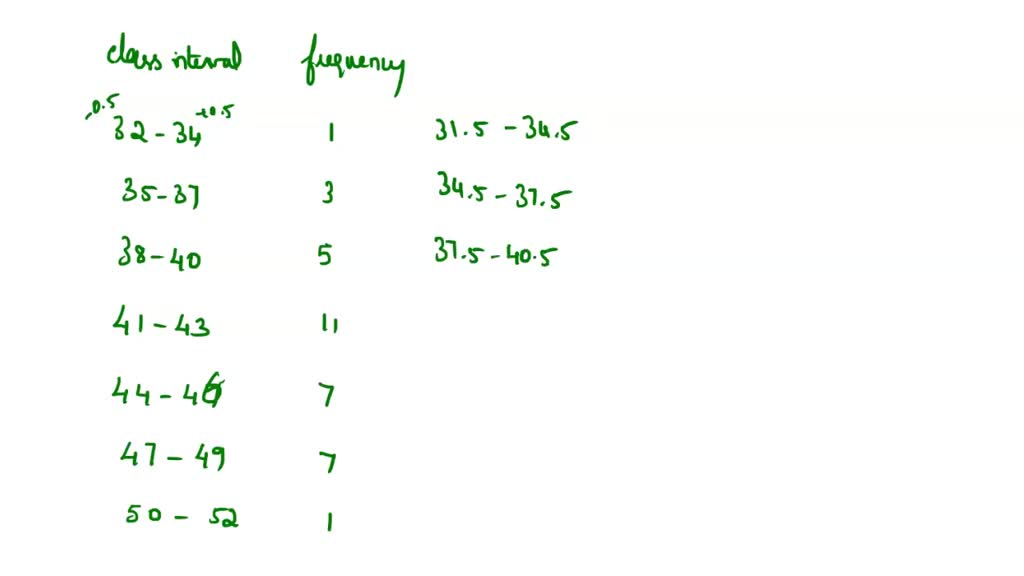 class interval frequency
-0.5 +0.5
32 - 34 1 31.5 - 34.5
35 - 37 3 34.5 - 37.5
38 - 40 5 37.5 - 40.5
41 - 43 11
44 - 46 7
47 - 49 7
50 - 52 1